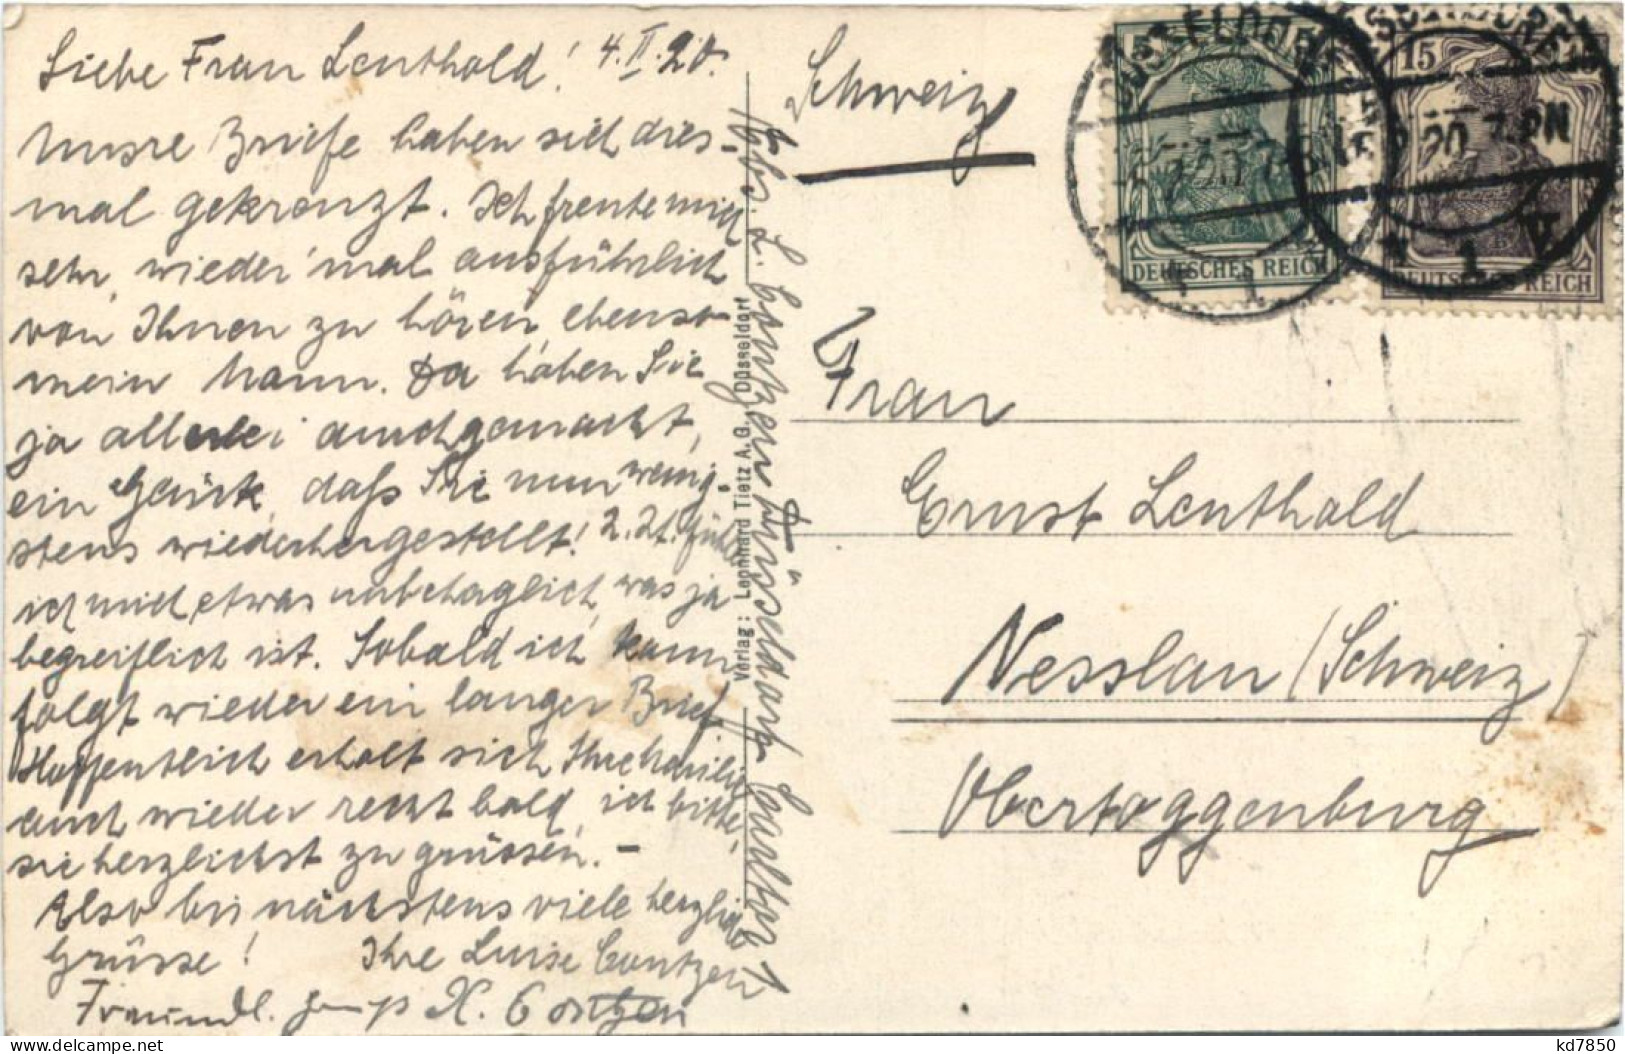 Liebe Frau Leuthold! 4.II.20.
Unsre Briefe haben sich dies-
mal gekreuzt. Ich freute mich
sehr, wieder mal ausführlich
von Ihnen zu hören, ebenso
mein Mann. Da haben Sie
ja allerlei durchgemacht,
ein Glück, daß Sie nun wenig-
stens wiederhergestellt! Z. Zt. fühle
ich mich etwas unbehaglich, was ja
begreiflich ist. Sobald ich kann
folgt wieder ein langer Brief.
Hoffentlich erholt sich Ihre
auch wieder recht bald, ich bitte,
sie herzlichst zu grüssen. -
Also bis nächstens viele herzliche
Grüsse! Ihre Luise Contzen
Freundl. K. Contzen
Abs. L. Contzen Düsseldorf
Verlag: Leonhard Tietz A.G. Düsseldorf
Schweiz
DÜSSELDORF
15
DEUTSCHES REICH
DEUTSCHES REICH
Frau
Ernst Leuthold
Nesslau (Schweiz)
Obertoggenburg
www.delcampe.net
kd7850